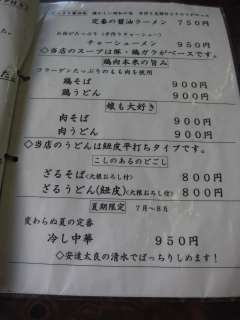 定番の醤油ラーメン 750円
お肉がたっぷり（手作りチャーシュー）
チャーシューメン 950円
◇当店のスープは豚・鶏ガラがベースです。
鶏肉本来の旨み
コラーゲンたっぷりのもも肉を使用
鶏そば 900円
鶏うどん 900円
娘も大好き
肉そば 900円
肉うどん 900円
◇当店のうどんは紐皮平打ちタイプです。
こしのあるのどごし
ざるそば（大根おろし付） 800円
ざるうどん（紐皮）（大根おろし付） 800円
夏期限定 7月～8月
変わらぬ夏の定番
冷し中華 950円
◇安達太良の清水でばっちりしめます！